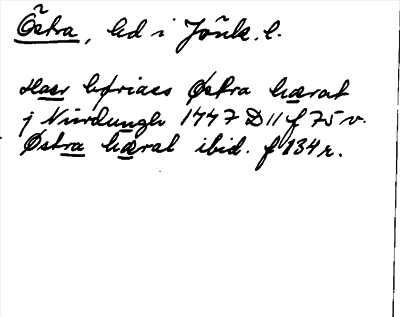 Östra, hd i Jönk. l.
Hær børiaes Østra hærat
j Niurdungh 1447 D 11 f 75 v.
Østra hæral ibid. f 134 r.